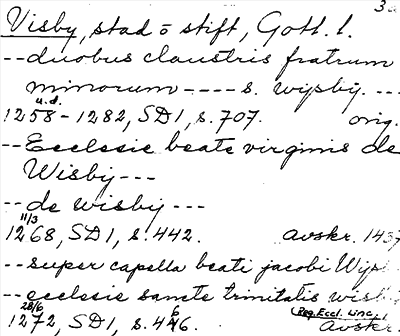 3a
Visby, stad o stift, Gotl. l.
-- duobus claustris fratrum
minorum ---- s. wysby. ---
u.d.
1258 - 1282, SD1, s. 707. orig.
-- Ecclesie beate virginis de
Wisby ---
-- de wisby ---
11/3
1268, SD1, s. 442. avskr. 1437
-- super capella beati jacobi Wysb
-- ecclesie sancte trinitatis wisb
28/6 6 (Reg. Eccl. Linc.)
1272, SD1, s. 446. avskr.